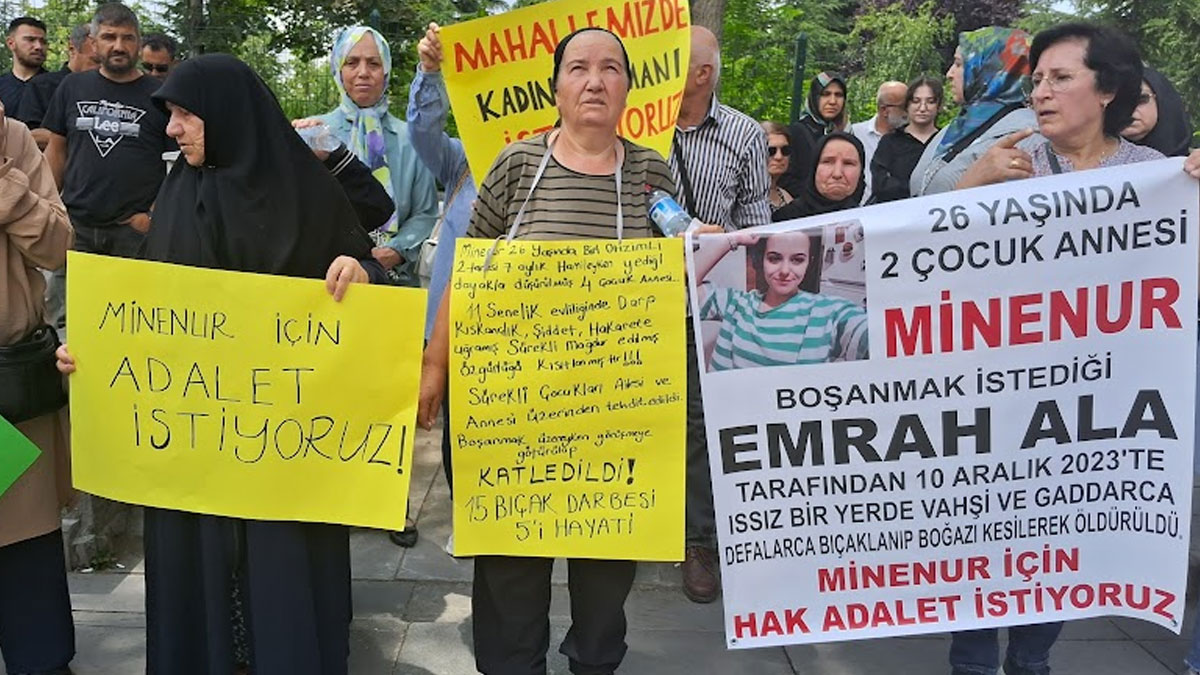 MAHALLEMİZDE
KADIN
İSTİYORUZ
CALIFORNIA
Lee
MİNENUR İÇİN
ADALET
İSTİYORUZ!
Minenur 26 Yaşında Biri Otizimli
2 tanesi 7 aylık Hamileyken yediği
dayakla düşürülmüş 4 çocuk Annesi...
11 Senelik evliliğinde Darp
Kıskançlık, Şiddet, Hakarete
uğramış Sürekli Mağdur edilmiş
özgürlüğü Kısıtlanmıştır!!!
Sürekli Çocukları Ailesi ve
Annesi üzerinden tehdit edildi.
Boşanmak üzereyken görüşmeye
götürülüp
KATLEDİLDİ!
15 BIÇAK DARBESİ
5'i HAYATİ
26 YAŞINDA
2 ÇOCUK ANNESİ
MİNENUR
BOŞANMAK İSTEDİĞİ
EMRAH ALA
TARAFINDAN 10 ARALIK 2023'TE
ISSIZ BİR YERDE VAHŞİ VE GADDARCA
DEFALARCA BIÇAKLANIP BOĞAZI KESİLEREK ÖLDÜRÜLDÜ.
MİNENUR İÇİN
HAK ADALET İSTİYORUZ